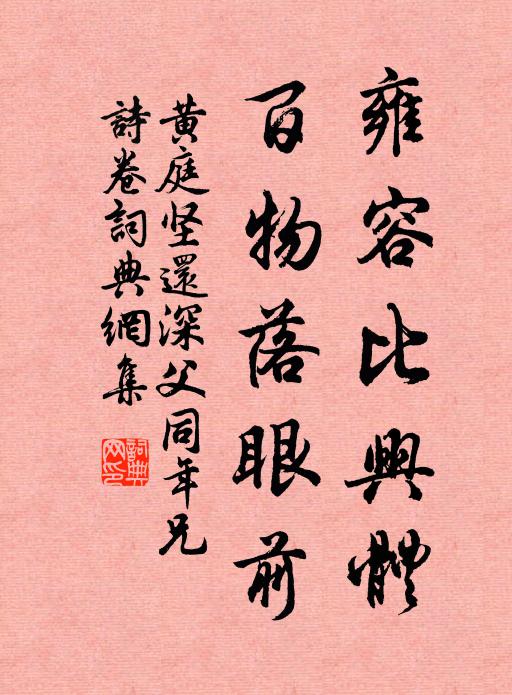 雍容比興體
百物落眼前
黄庭坚還深父同年兄
詩卷詞典網集
詞典網印